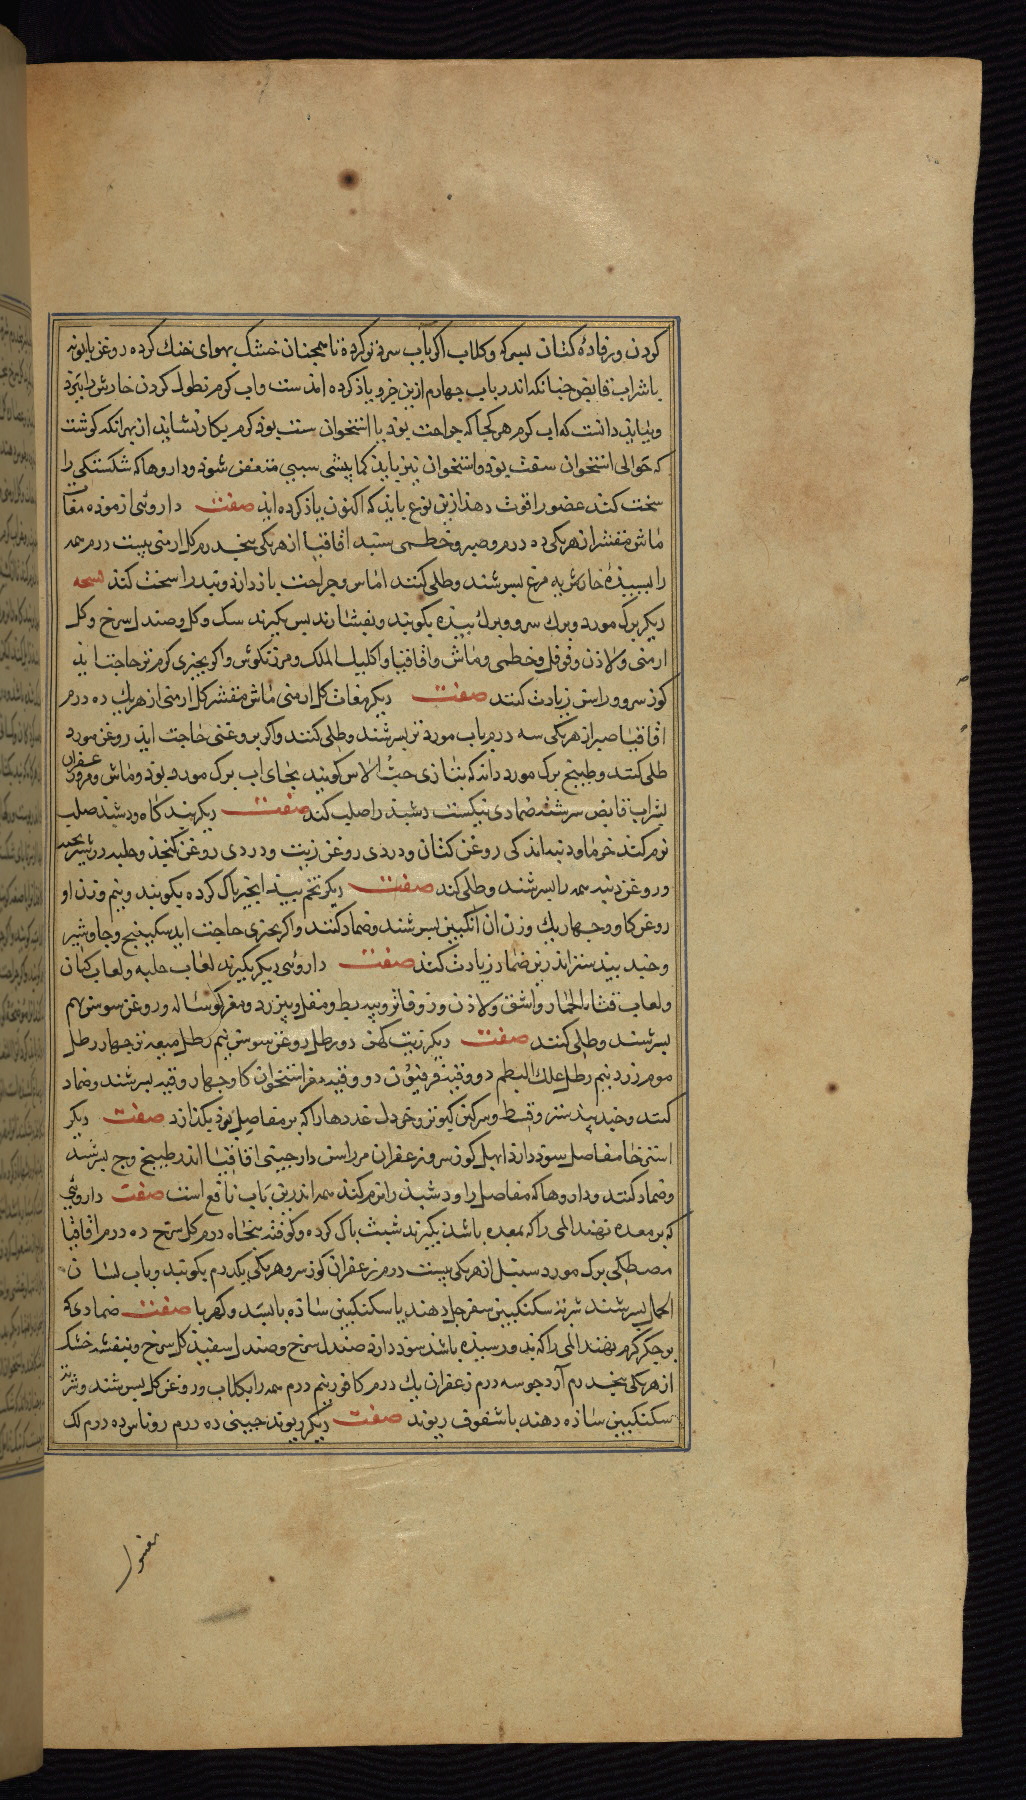 کردن و رفادهٔ کتان بسرکه و کلاب اکر بآب سرد تر کرده تا همچنان خشک بهوای خنک کرده روغن بابونه
با شراب قابض جنانکه اندر باب جهارم ازین جزو یاذ کرده امذست واب کرم نطول کردن خارش را ببرد
وببایذ دانست که اب کرم هر کجا که جراحت بوذ یا استخوان سست بوذ کرم بکار نشایذ از بهر انکه کوشت
که حوالی استخوان سفت بوذ واستخوان نیز بایذ کما بیشی سببی متعفن شوذ وداروها که شکستکی را
سخت کند عضو را قوت دهذ ازین نوع بایذ که اکنون یاذ کرده ایذ صفت داروئی ازموده مغاث
ماش مقشر از هر یکی ده درم وصبر وخطمی سپید اقاقیا از هر یکی پنجدرم کل ارمنی بیست درم همه
را بسپیذهٔ خایهٔ مرغ بسرشند وطلی کنند اماس وجراحت باز دارذ وبند را سخت کند نسخه
دیکر برک مورد وبرک سرو وبرک بیذ بکوبند وبفشارند پس بکیرند سک وکل وصندل سرخ وکل
ارمنی ولاذن وفوفل وخطمی وماش واقاقیا واکلیل الملک ومرزنکوش واکر بچیزی کرم تر حاجت ایذ
کوز سرو وراسن زیادت کنند صفت دیکر مغاث کل ارمنی ماش مقشر کل ارمنی از هر یک ده درم
اقاقیا صبر از هر یکی سه درم باب مورد تر بسرشند وطلی کنند واکر بروغنی حاجت ایذ روغن مورد
طلی کنند وطبیخ برک مورد دانه که بتازی حبّ الاس کویند بجای اب برک مورد بوذ وماش ومرورد
بشراب قابض سرشته ضمادی نیکست دشبذ را صلب کند صفت دیکر بند کاه ودشبذ صلب
نرم کند خرما ودنبه اندکی روغن کتان ودردی روغن زیت ودردی روغن کنجذ وحلبه
وروغن دنبه همه را بسرشند وطلی کند صفت دیکر تخم بیذ انجیر پاک کرده بکوبند ونیم وزن او
روغن کاو وجهار یک وزن ان انکبین بسرشند وضماد کنند واکر بچیزی حاجت ایذ سکبینج وجاوشیر
وجند بیدستر اندرین ضماد زیادت کنند صفت داروئی دیکر بکیرند لعاب حلبه ولعاب کتان
ولعاب قثاء الحمار واشق ولاذن وزوفا تر وپیه بط ومقل وبیرزد ومغز کوساله وروغن سوسن بهم
بسرشند وطلی کنند صفت دیکر زیت کهن دو رطل روغن سوسن نیم رطل میعه تر جهار رطل
موم زرد نیم رطل علک البطم دو وقیه فرفیون دو وقیه مغز استخوان کاو جهار وقیه بسرشند وضماد
کنند وجند بیذستر وقسط وسرکین کبوتر وخردل غددها را که بر مفاصل بوذ بکذارذ صفت دیکر
استرخا مفاصل سوذ دارذ ابهل کوز سرو زعفران مر راسن دارجینی اقاقیا اندر طبیخ وج بسرشند
وضماد کنند وداروها که مفاصل را ودشبذ را نرم کند همه اندرین باب نافع است صفت داروئی
که بر معده نهند المی را که بمعده باشد بکیرند شبث پاک کرده وکوفته پنجاه درم کل سرخ ده درم اقاقیا
مصطکی برک مورد سنبل از هر یکی بیست درم زعفران کوز سرو هر یکی یکدرم بکوبند وباب لسان
الحمل بسرشند شربت سکنکبین سفرجل دهند یا سکنکبین ساذه با بسّد وکهربا صفت ضمادی که
بر جکر کرم نهند المی را که بذو رسیذه باشد سوذ دارذ صندل سرخ وصندل سفیذ کل سرخ وبنفشه خشک
از هر یکی پنجدرم آرد جو سه درم زعفران یک درم کافور نیم درم همه را بکلاب وروغن کل بسرشند وشربت
سکنکبین ساذه دهند با سفوف ریوند صفت دیکر ریوند جینی ده درم روناس ده درم لک
مغسول